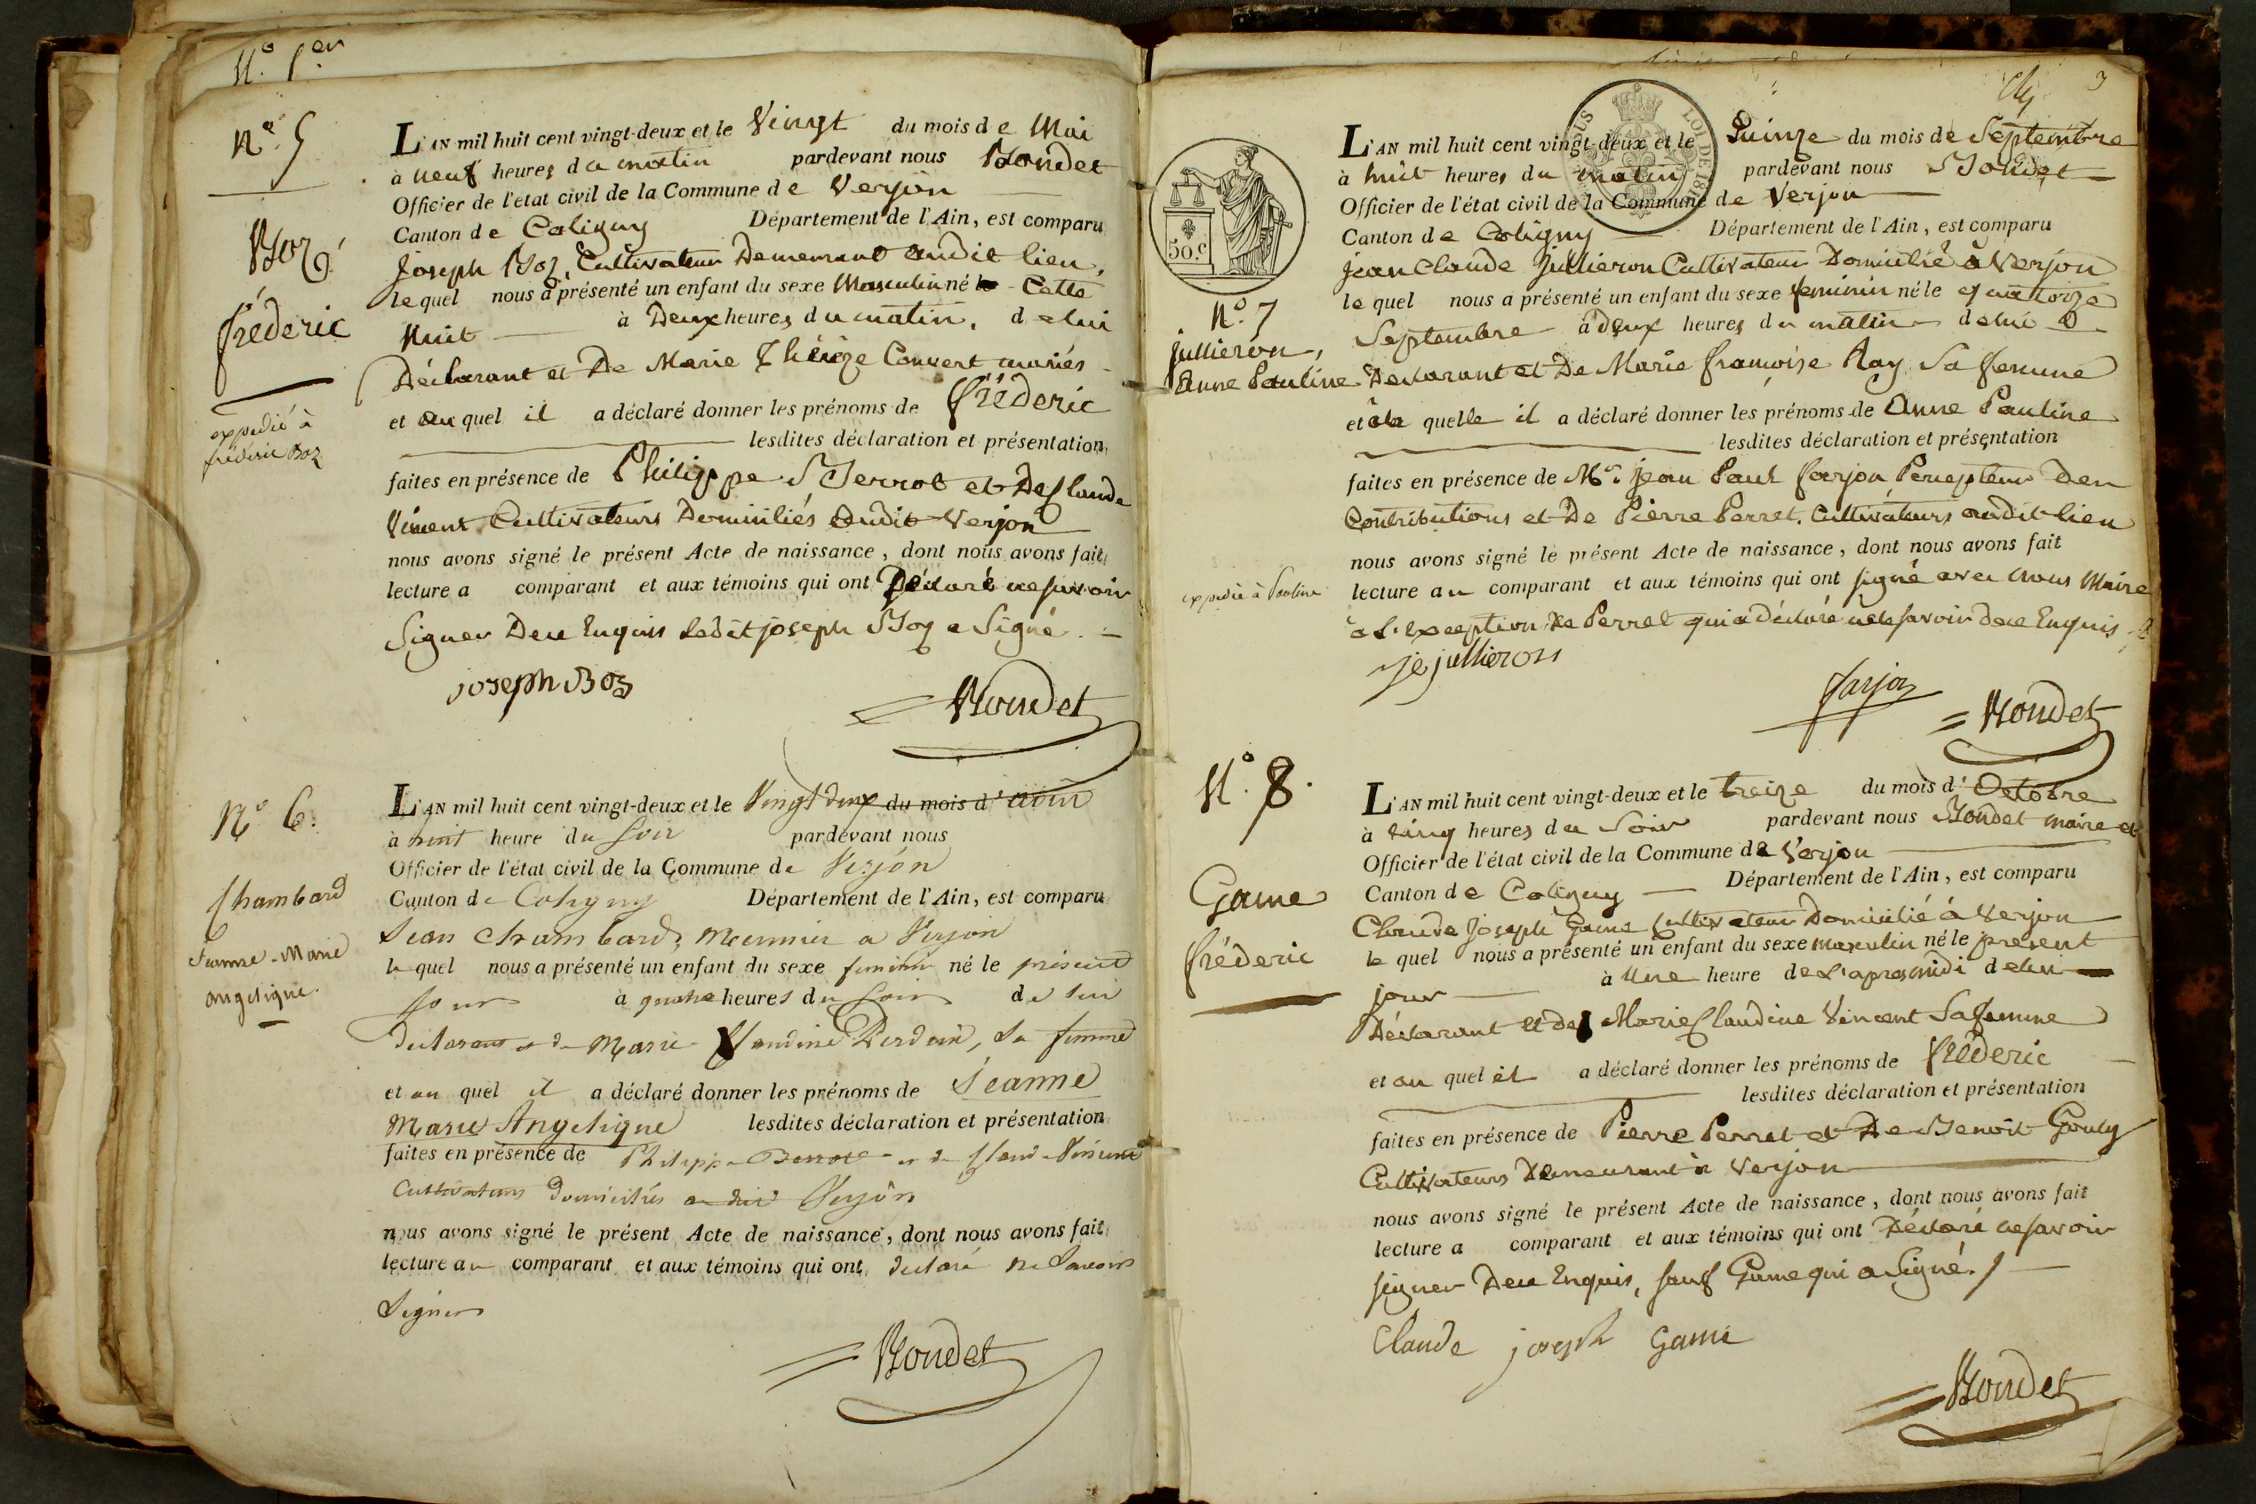 N.º 1.er
N.º 5
Boz
fréderic
expedié à
fréderic Boz
L'AN mil huit cent vingt-deux et le Vingt du mois de Mai
à neuf heures du matin pardevant nous Bondet
Officier de l'etat civil de la Commune de Verjon
Canton de Coligny Département de l'Ain, est comparu
Joseph Boz, Cultivateur Demeurant audit lieu,
lequel nous a présenté un enfant du sexe Masculin né Cette
Nuit à Deux heures du matin, de lui
Déclarant et De Marie Thérèze Convert mariés
et auquel il a déclaré donner les prénoms de fréderic
lesdites déclaration et présentation
faites en présence de Philippe Perrot et De Claude
Vincent Cultivateurs Domiciliés audit Verjon
nous avons signé le présent Acte de naissance, dont nous avons fait
lecture a comparant et aux témoins qui ont Déclaré ne savoir
Signer De ce Enquis Ledit joseph Boz a Signé.
joseph Boz
Bondet
N.º 6.
Chambard
Jeanne-Marie
angelique.
L'AN mil huit cent vingt-deux et le Vingt deux du mois d'aout
à huit heure du soir pardevant nous
Officier de l'état civil de la Commune de Verjon
Canton de Coligny Département de l'Ain, est comparu
Jean Chambard, Meunier a Verjon
lequel nous a présenté un enfant du sexe feminin né le présent
jour à quatre heures du soir de lui
declarant et de Marie Claudine Perdrix, sa femme
et au quel il a déclaré donner les prénoms de Jeanne
Marie Angelique lesdites déclaration et présentation
faites en présence de Philippe Perrot et de Claude Vincent
Cultivateurs domiciliés au dit Verjon
nous avons signé le présent Acte de naissance, dont nous avons fait
lecture au comparant et aux témoins qui ont declaré ne savoir
signer
Bondet
3
LOI DE 181
50.c
N.º 7
jullieron,
Anne Pauline
expedié à Pauline
L'AN mil huit cent vingt-deux et le Quinze du mois de Septembre
à huit heures du matin pardevant nous Bondet
Officier de l'état civil de la Commune de Verjon
Canton de Coligny Département de l'Ain, est comparu
jean Claude Jullieron Cultivateur Domicilié à Verjon
lequel nous a présenté un enfant du sexe feminin né le quattorze
Septembre à deux heures du matin de lui
Déclarant et De Marie françoise Ray Sa femme
et à la quelle il a déclaré donner les prénoms de Anne Pauline
lesdites déclaration et présentation
faites en présence de Mr. jean Paul farjon Percepteur Des
Contributions et De Pierre Perret, Cultivateurs audit lieu
nous avons signé le présent Acte de naissance, dont nous avons fait
lecture au comparant et aux témoins qui ont signé avec Nous Maire
à L'exception De Perret qui a déclaré ne le savoir de ce Enquis
je jullieron
farjon
Bondet
N.º 8.
Game
fréderic
L'AN mil huit cent vingt-deux et le treize du mois d'Octobre
à cinq heures du Soir pardevant nous Bondet maire et
Officier de l'état civil de la Commune de Verjon
Canton de Coligny Département de l'Ain, est comparu
Claude Joseph Game Cultivateur Domicilié à Verjon
lequel nous a présenté un enfant du sexe masculin né le present
jour à Une heure de L'apres midi de lui
Déclarant et de Marie Claudine Vincent Sa femme
et au quel il a déclaré donner les prénoms de fréderic
lesdites déclaration et présentation
faites en présence de Pierre Perret et De Benoit Gouly
Cultivateurs Demeurant à Verjon
nous avons signé le présent Acte de naissance, dont nous avons fait
lecture a comparant et aux témoins qui ont Déclaré ne savoir
signer De ce Enquis, sauf Game qui a Signé.
Claude joseph Game
Bondet